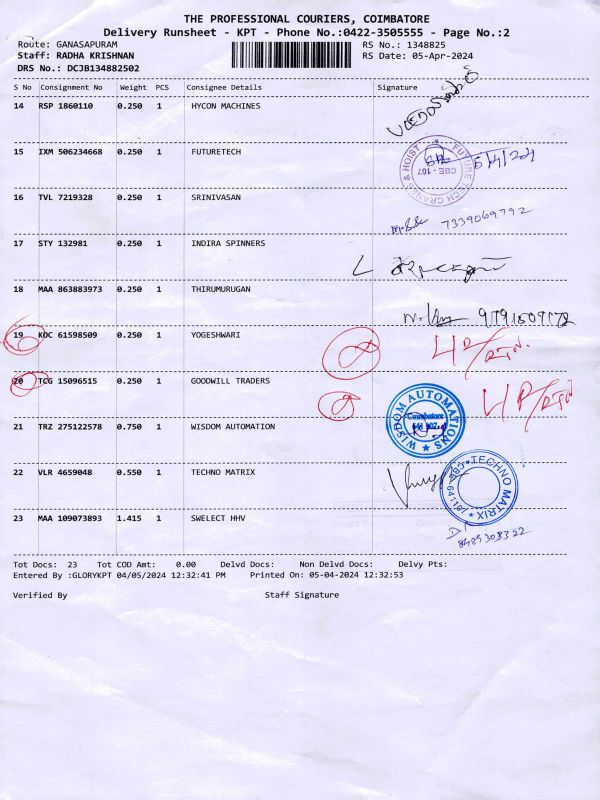 THE PROFESSIONAL COURIERS, COIMBATORE
Delivery Runsheet - KPT - Phone No.:0422-3505555 - Page No.:2
Route: GANASAPURAM RS No.: 1348825
Staff: RADHA KRISHNAN RS Date: 05-Apr-2024
DRS No.: DCJB134882502
S No Consignment No Weight PCS Consignee Details Signature
14 RSP 1860110 0.250 1 HYCON MACHINES
15 IXM 506234668 0.250 1 FUTURETECH
FUTURE TECH CRANES & HOIST
CBE - 107
5/4/24
16 TVL 7219328 0.250 1 SRINIVASAN
7339069792
17 STY 132981 0.250 1 INDIRA SPINNERS
18 MAA 863883973 0.250 1 THIRUMURUGAN
19 KOC 61598509 0.250 1 YOGESHWARI
20 TCG 15096515 0.250 1 GOODWILL TRADERS
21 TRZ 275122578 0.750 1 WISDOM AUTOMATION
WISDOM AUTOMATIONS
Coimbatore
22 VLR 4659048 0.550 1 TECHNO MATRIX
TECHNO MATRIX
23 MAA 109073893 1.415 1 SWELECT HHV
8489308322
Tot Docs: 23 Tot COD Amt: 0.00 Delvd Docs: Non Delvd Docs: Delvy Pts:
Entered By :GLORYKPT 04/05/2024 12:32:41 PM Printed On: 05-04-2024 12:32:53
Verified By Staff Signature